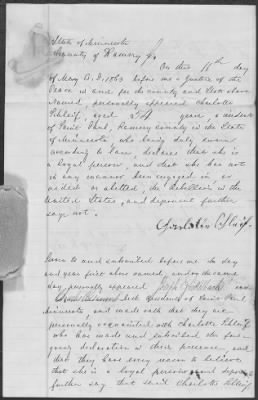 State of Minnesota
County of Ramsey ss
On this 11th day
of May A.D. 1869 before me a Justice of the
Peace in and for the county and State above
Named, personally appeared Charlotte
Schleif, aged 34 years, a resident
of Saint Paul, Ramsey County in the State
of Minnesota, who being duly sworn
according to law, declares that she is
a loyal person, and that she has not
in any manner been engaged in, or
aided or abetted, the Rebellion in the
United States, and deponent further
says not.
Charlotte Schleif
Sworn to and subscribed before me the day
and year first above named, and on the same
day personally appeared Joseph and
both residents of Saint Paul
Minnesota, and made oath that they are
personally acquainted with Charlotte Schleif
who has made and subscribed the fore-
going declaration in their presence and
that they have every reason to believe
that she is a loyal person and deponents
further say that said Charlotte Schleif